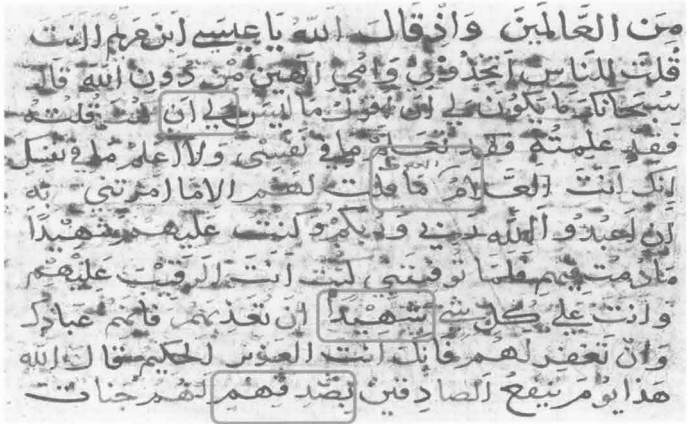 مِنَ العَالَمِينَ وَاذ قَالَ اللهُ يَا عِيسَى ابنَ مَريَم انت
قُلتَ لِلنَّاسِ اتخذوني وَامي الَهَين مِن دُون الله قال
سُبحَانكَ ما يكُونَ لي ان اقول ما لَيسَ لي ان كنت قلته
فَقَد عَلِمتُه وقد تَعلَم ما في نَفسِي وَلا اعلَم ما في نفسك
انك انت العَلام مَا قلت لَهُم الا ما امرتني به
اَن اعبُدوُ الله رَبي وربكم وكنت عَليهم شَهِيدًا
ما دمت فيهم فَلَما توفيتني كنت اَنتَ الرَقيب عَليهم
وَانت عَلي كُل شي شَهِيدًا ان تعَذبهم فانهم عبادك
وَان تَغفِر لَهُم فَانك انت العَزيز الحكيم قال الله
هَذا يَوم يَنفَعُ الصادقين بِصِدقِهِم لَهُم جَنات